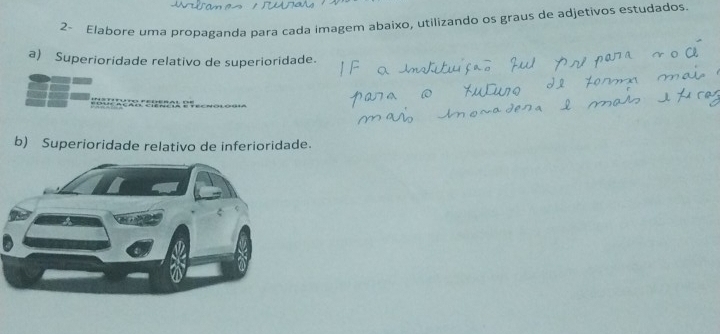 urbanas, rurais
2- Elabore uma propaganda para cada imagem abaixo, utilizando os graus de adjetivos estudados.
a) Superioridade relativo de superioridade.
IF a instituição que prepara você
para o futuro de forma mais
mais inovadora e mais eficaz
INSTITUTO FEDERAL DE
EDUCAÇÃO, CIÊNCIA E TECNOLOGIA
b) Superioridade relativo de inferioridade.